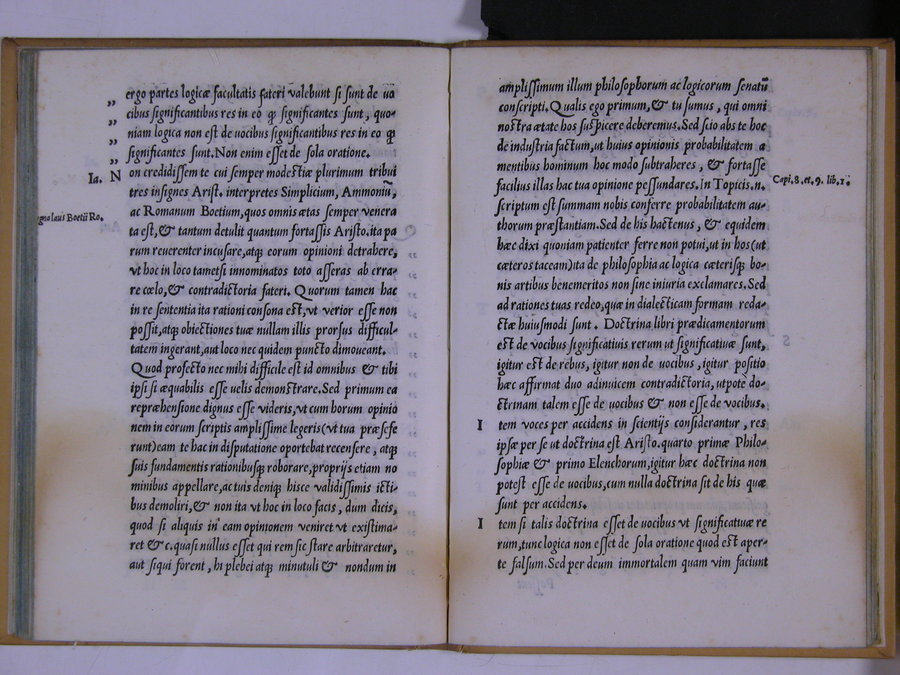 ergo partes logicæ facultatis fateri valebunt si sunt de uo
„ cibus significantibus res in eo qꝫ significantes sunt, quo-
„ niam logica non est de uocibus significantibus res in eo qꝫ
„ significantes sunt. Non enim esset de sola oratione.
Ia. N on credidissem te cui semper modestiæ plurimum tribui
tres insignes Arist. interpretes Simplicium, Ammoniũ,
ac Romanum Boetium, quos omnis ætas semper venera
laus Boetii Ro.
ta est, & tantum detulit quantum fortassis Aristo. ita pa
rum reuerenter incusare, atqꝫ eorum opinioni detrahere,
vt hoc in loco tametsi innominatos toto asseras ab erra-
re cœlo, & contradictoria fateri. Quorum tamen hac
in re sententia ita rationi consona est, vt verior esse non
possit, atqꝫ obiectiones tuæ nullam illis prorsus difficul-
tatem ingerant, aut loco nec quidem puncto dimoueant.
Quod profecto nec mihi difficile est id omnibus & tibi
ipsi si æquabilis esse uelis demonstrare. Sed primum ea
repræhensione dignus esse videris, vt cum horum opinio
nem in eorum scriptis amplissime legeris (vt tua præsefe
runt) eam te hac in disputatione oportebat recensere, atqꝫ
suis fundamentis rationibusqꝫ roborare, proprijs etiam no
minibus appellare, ac tuis deniqꝫ hisce validissimis icti-
bus demoliri, & non ita vt hoc in loco facis, dum dicis,
quod si aliquis in eam opinionem veniret vt existima-
ret &c. quasi nullus esset qui rem sic stare arbitraretur,
aut siqui forent, hi plebei atqꝫ minutuli & nondum in
amplissimum illum philosophorum ac logicorum senatũ
conscripti. Qualis ego primum, & tu sumus, qui omni
nostra ætate hos suspicere deberemus. Sed scio abs te hoc
de industria factum, ut huius opinionis probabilitatem a
mentibus hominum hoc modo subtraheres, & fortasse
facilius illas hac tua opinione pessundares. In Topicis. n.
Capi. 8. et. 9. lib. 1.
scriptum est summam nobis conferre probabilitatem au-
thorum præstantiam. Sed de his hactenus, & equidem
hæc dixi quoniam patienter ferre non potui, ut in hos (ut
cæteros taceam) ita de philosophia ac logica cæterisqꝫ bo-
nis artibus benemeritos non sine iniuria exclamares. Sed
ad rationes tuas redeo, quæ in dialecticam formam reda-
ctæ huiusmodi sunt. Doctrina libri prædicamentorum
est de vocibus significatiuis rerum ut significatiuæ sunt,
igitur est de rebus, igitur non de uocibus, igitur positio
hæc affirmat duo adinuicem contradictoria, utpote do-
ctrinam talem esse de uocibus & non esse de vocibus.
I tem voces per accidens in scientijs considerantur, res
ipsæ per se ut doctrina est Aristo. quarto primæ Philo-
sophiæ & primo Elenchorum, igitur hæc doctrina non
potest esse de uocibus, cum nulla doctrina sit de his quæ
sunt per accidens.
I tem si talis doctrina esset de uocibus vt significatiuæ re
rum, tunc logica non esset de sola oratione quod est aper-
te falsum. Sed per deum immortalem quam vim faciunt